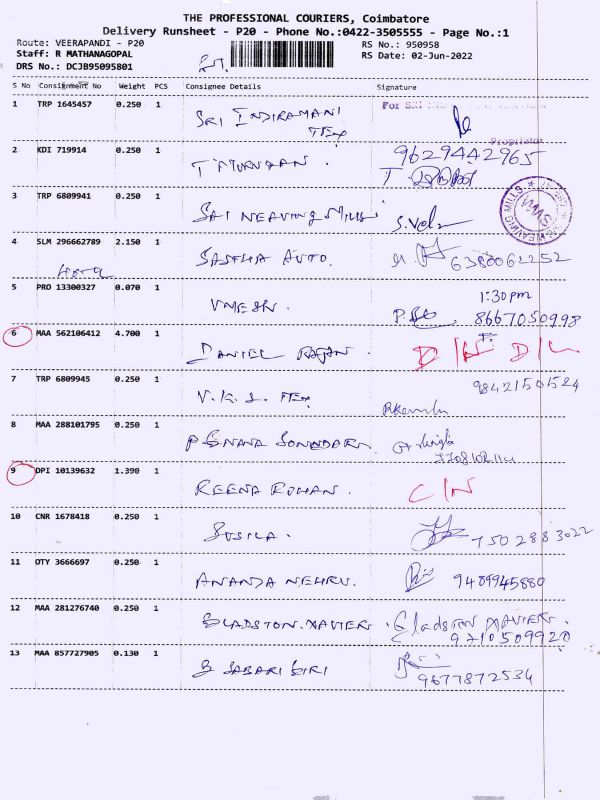 THE PROFESSIONAL COURIERS, Coimbatore
Delivery Runsheet - P20 - Phone No.:0422-3505555 - Page No.:1
Route: VEERAPANDI - P20 RS No.: 950958
Staff: R MATHANAGOPAL RS Date: 02-Jun-2022
DRS No.: DCJB95095801
S No Consignment No Weight PCS Consignee Details Signature
1 TRP 1645457 0.250 1 SRI INDIRAMANI TEX For SRI
Proprietor
2 KDI 719914 0.250 1 T MURUGAN. 9629442965
3 TRP 6809941 0.250 1 SAI WEAVING MILLS S.Vel
4 SLM 296662789 2.150 1 SASTHA AUTO. 6380062252
5 PRO 13300327 0.070 1 UMESH. 1:30pm
8667050998
6 MAA 562106412 4.700 1 DANIEL RAJAN. D/L
7 TRP 6809945 0.250 1 V.K.S. TEX 98421501524
8 MAA 288101795 0.250 1
9 DPI 10139632 1.390 1 REENA ROHAN. C/N
10 CNR 1678418 0.250 1 SUSILA. 7502883022
11 OTY 3666697 0.250 1 ANANDA NEHRU. 9489945880
12 MAA 281276740 0.250 1 GLADSTON.XAVIER. Gladston XAVIER.
9710509920
13 MAA 857727905 0.130 1 S SABARI GIRI 9677872534